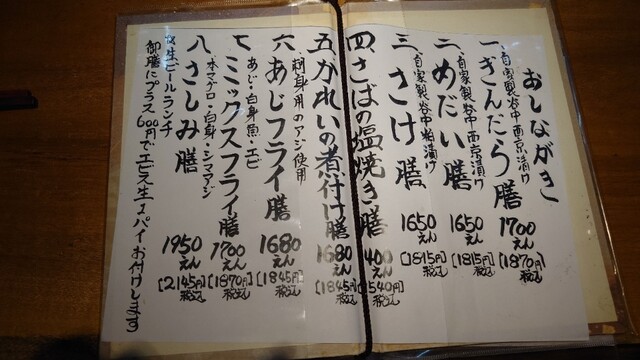 おしながき
一、ぎんだら膳
自家製谷中西京漬け
1700えん
[1870円税込]
二、めだい膳
自家製谷中西京漬け
1650えん
[1815円税込]
三、さけ膳
自家製谷中粕漬け
1650えん
[1815円税込]
四、さばの塩焼き膳
400えん
540円税込]
五、かれいの煮付け膳
1680えん
[1845円税込]
六、あじフライ膳
刺身用のアジ使用
1680えん
[1845円税込]
七、ミックスフライ膳
あじ・白身魚・エビ
1700えん
[1870円税込]
八、さしみ膳
本マグロ・白身・シマアジ
1950えん
[2145円税込]
生ビールランチ
御膳にプラス600円でエビス生1パイお付けします